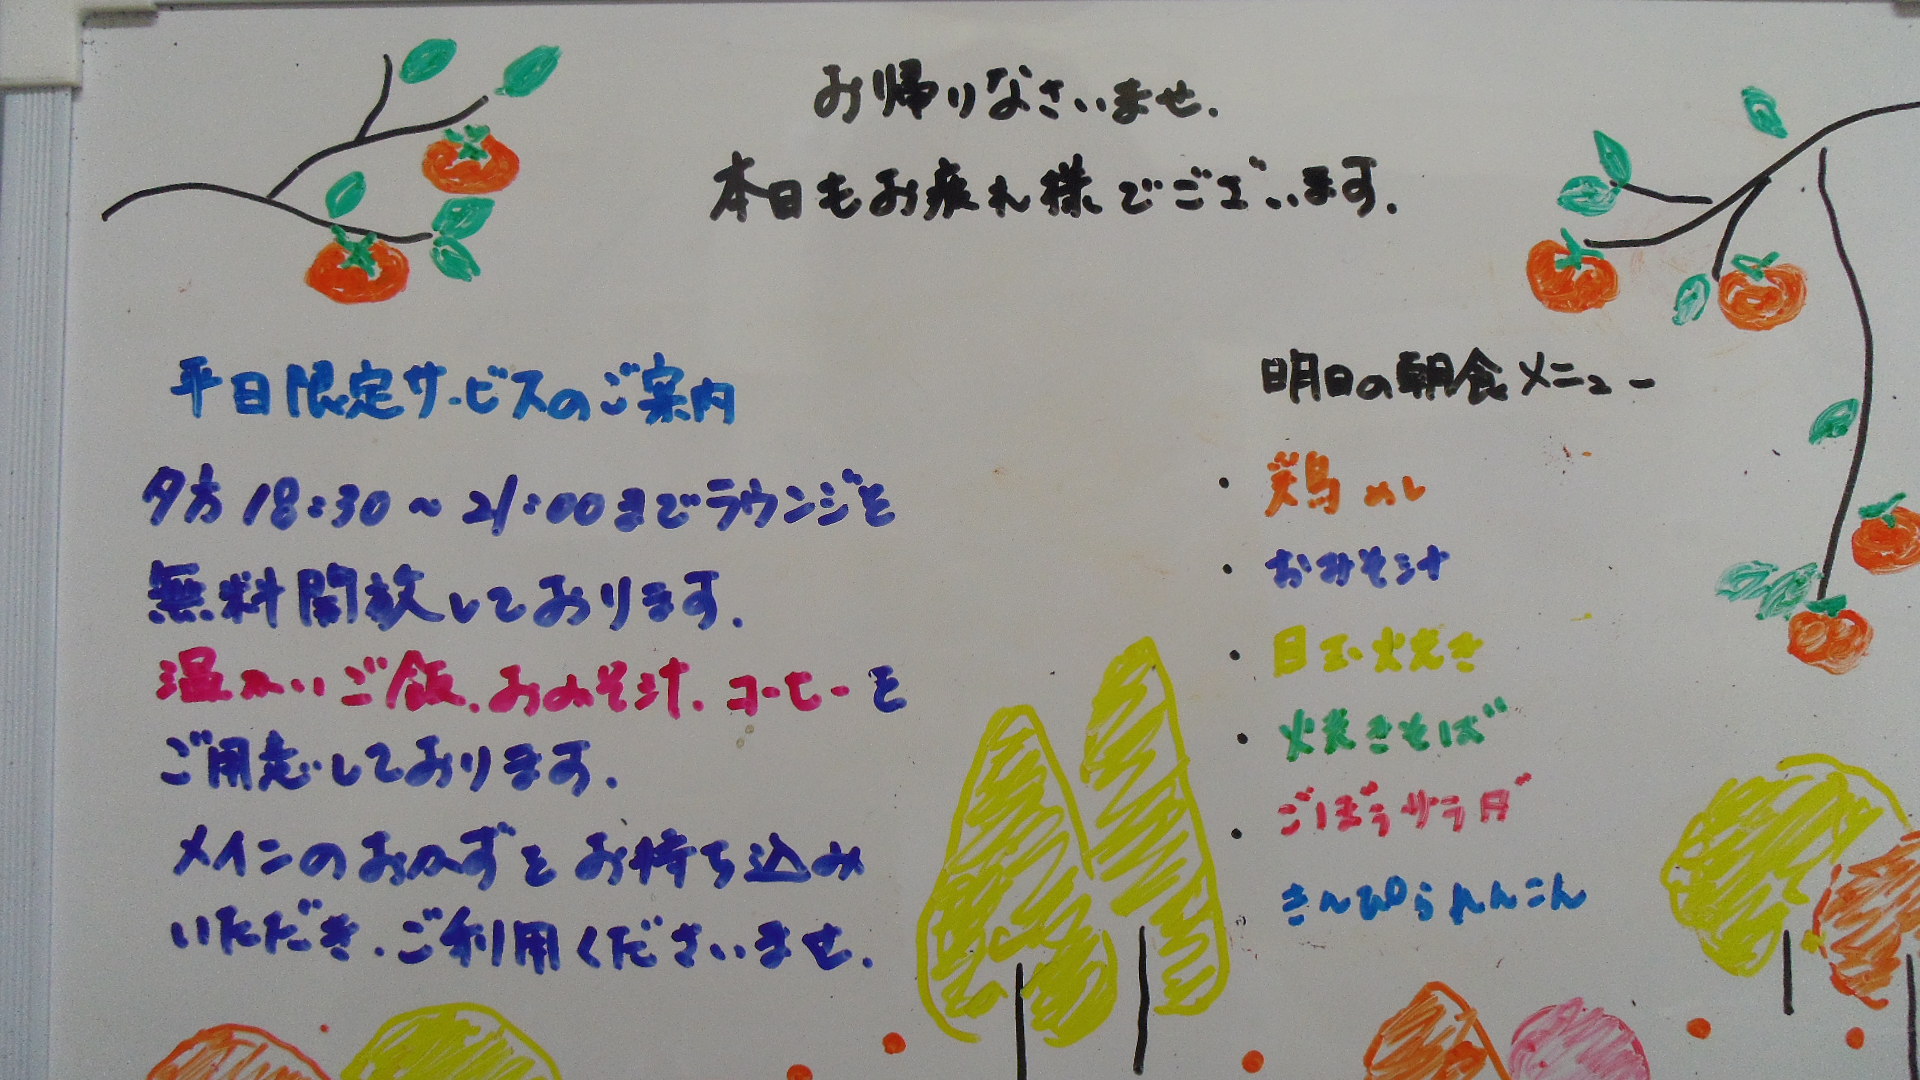 お帰りなさいませ.
本日もお疲れ様でございます.
平日限定サービスのご案内
夕方18:30～21:00までラウンジを
無料開放しております.
温かいご飯.おみそ汁.コーヒーを
ご用意しております.
メインのおかずをお持ち込み
いただき.ご利用くださいませ.
明日の朝食メニュー
・鶏めし
・おみそ汁
・目玉焼き
・焼きそば
・ごぼうサラダ
きんぴられんこん